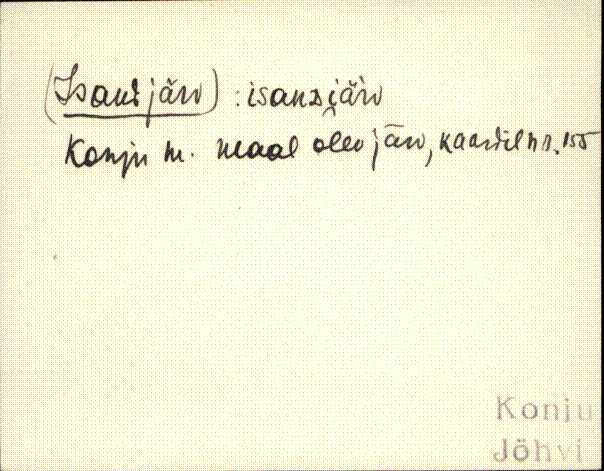 (Isandjärv) : isanzi̯ärv
Konju m. maal olev järv, kaardil nr. 155
Konju
Jõhvi